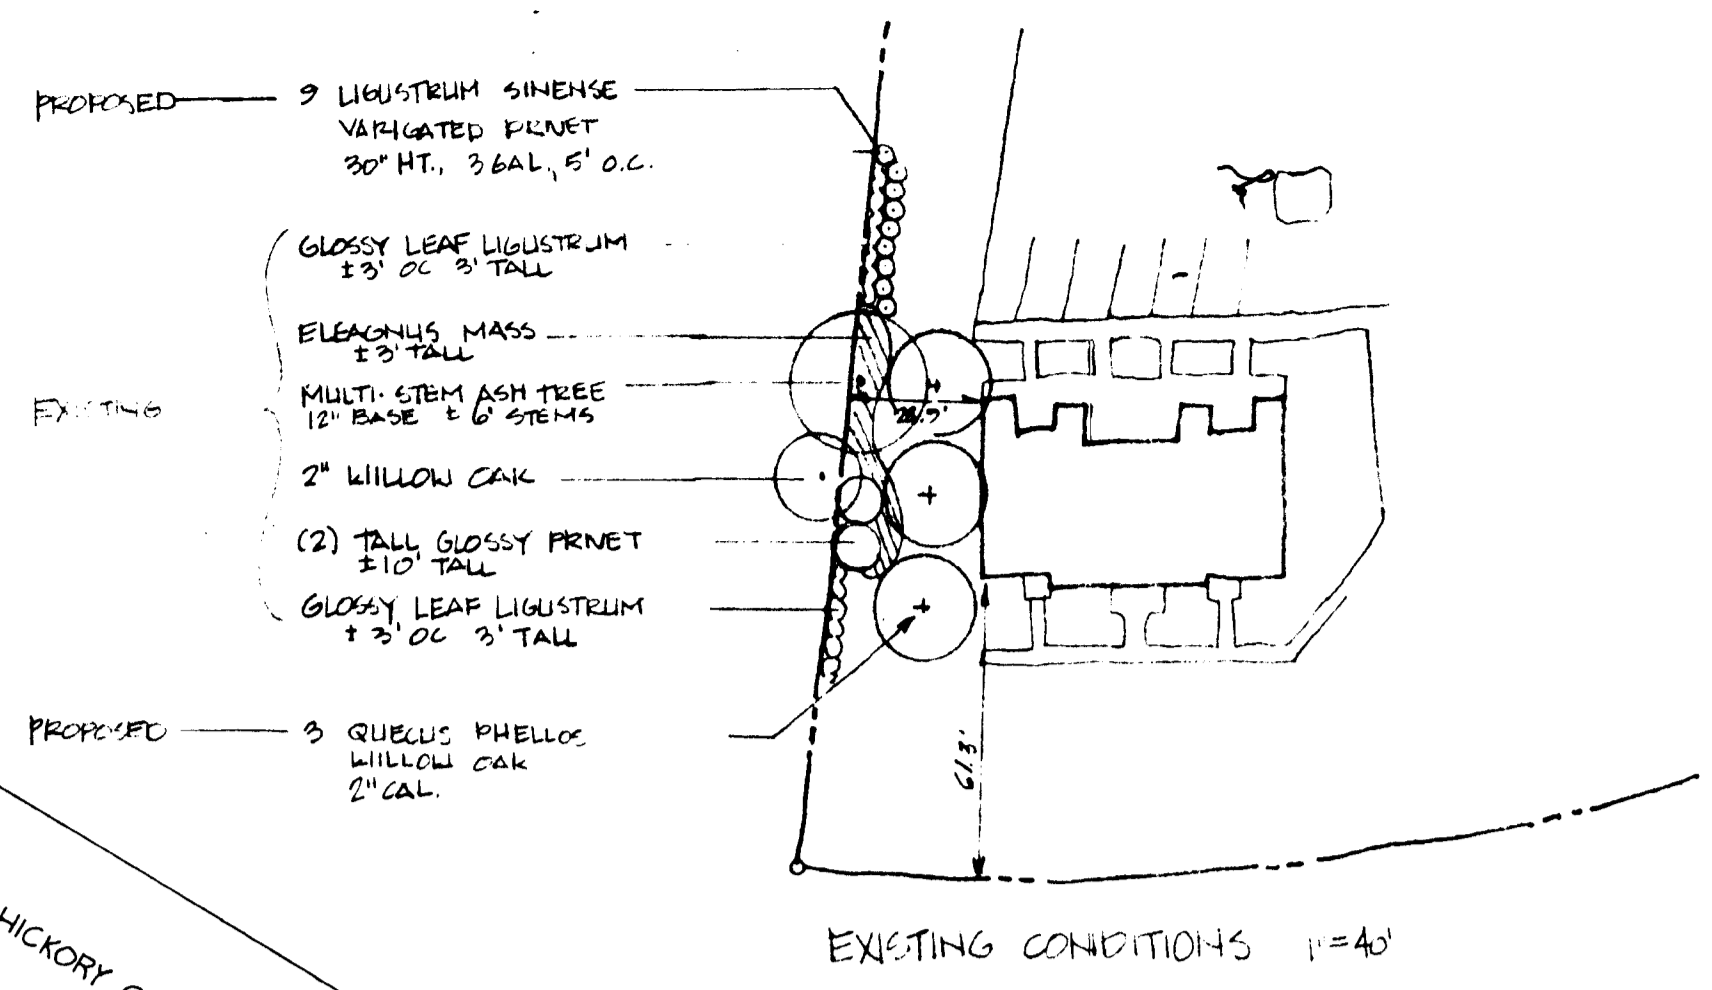 PROPOSED
9 LIGUSTRUM SINENSE
VARIGATED PRIVET
30" HT., 3 GAL., 5' O.C.
EXISTING
GLOSSY LEAF LIGUSTRUM
±3' OC 3' TALL
ELEAGNUS MASS
±3' TALL
MULTI-STEM ASH TREE
12" BASE ± 6' STEMS
2" WILLOW OAK
(2) TALL GLOSSY PRIVET
±10' TALL
GLOSSY LEAF LIGUSTRUM
±3' OC 3' TALL
PROPOSED
3 QUECUS PHELLOS
WILLOW OAK
2" CAL.
61.3'
HICKORY
EXISTING CONDITIONS 1"=40'